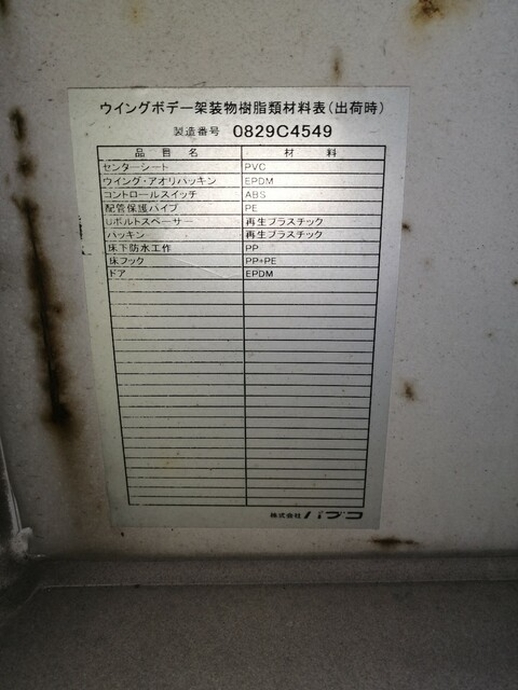 ウイングボデー架装物樹脂類材料表(出荷時)
製造番号 0829C4549
品目名 材料
センターシート PVC
ウイング・アオリパッキン EPDM
コントロールスイッチ ABS
配管保護パイプ PE
Uボルトスペーサー 再生プラスチック
パッキン 再生プラスチック
床下防水工作 PP
床フック PP+PE
ドア EPDM
株式会社パブコ